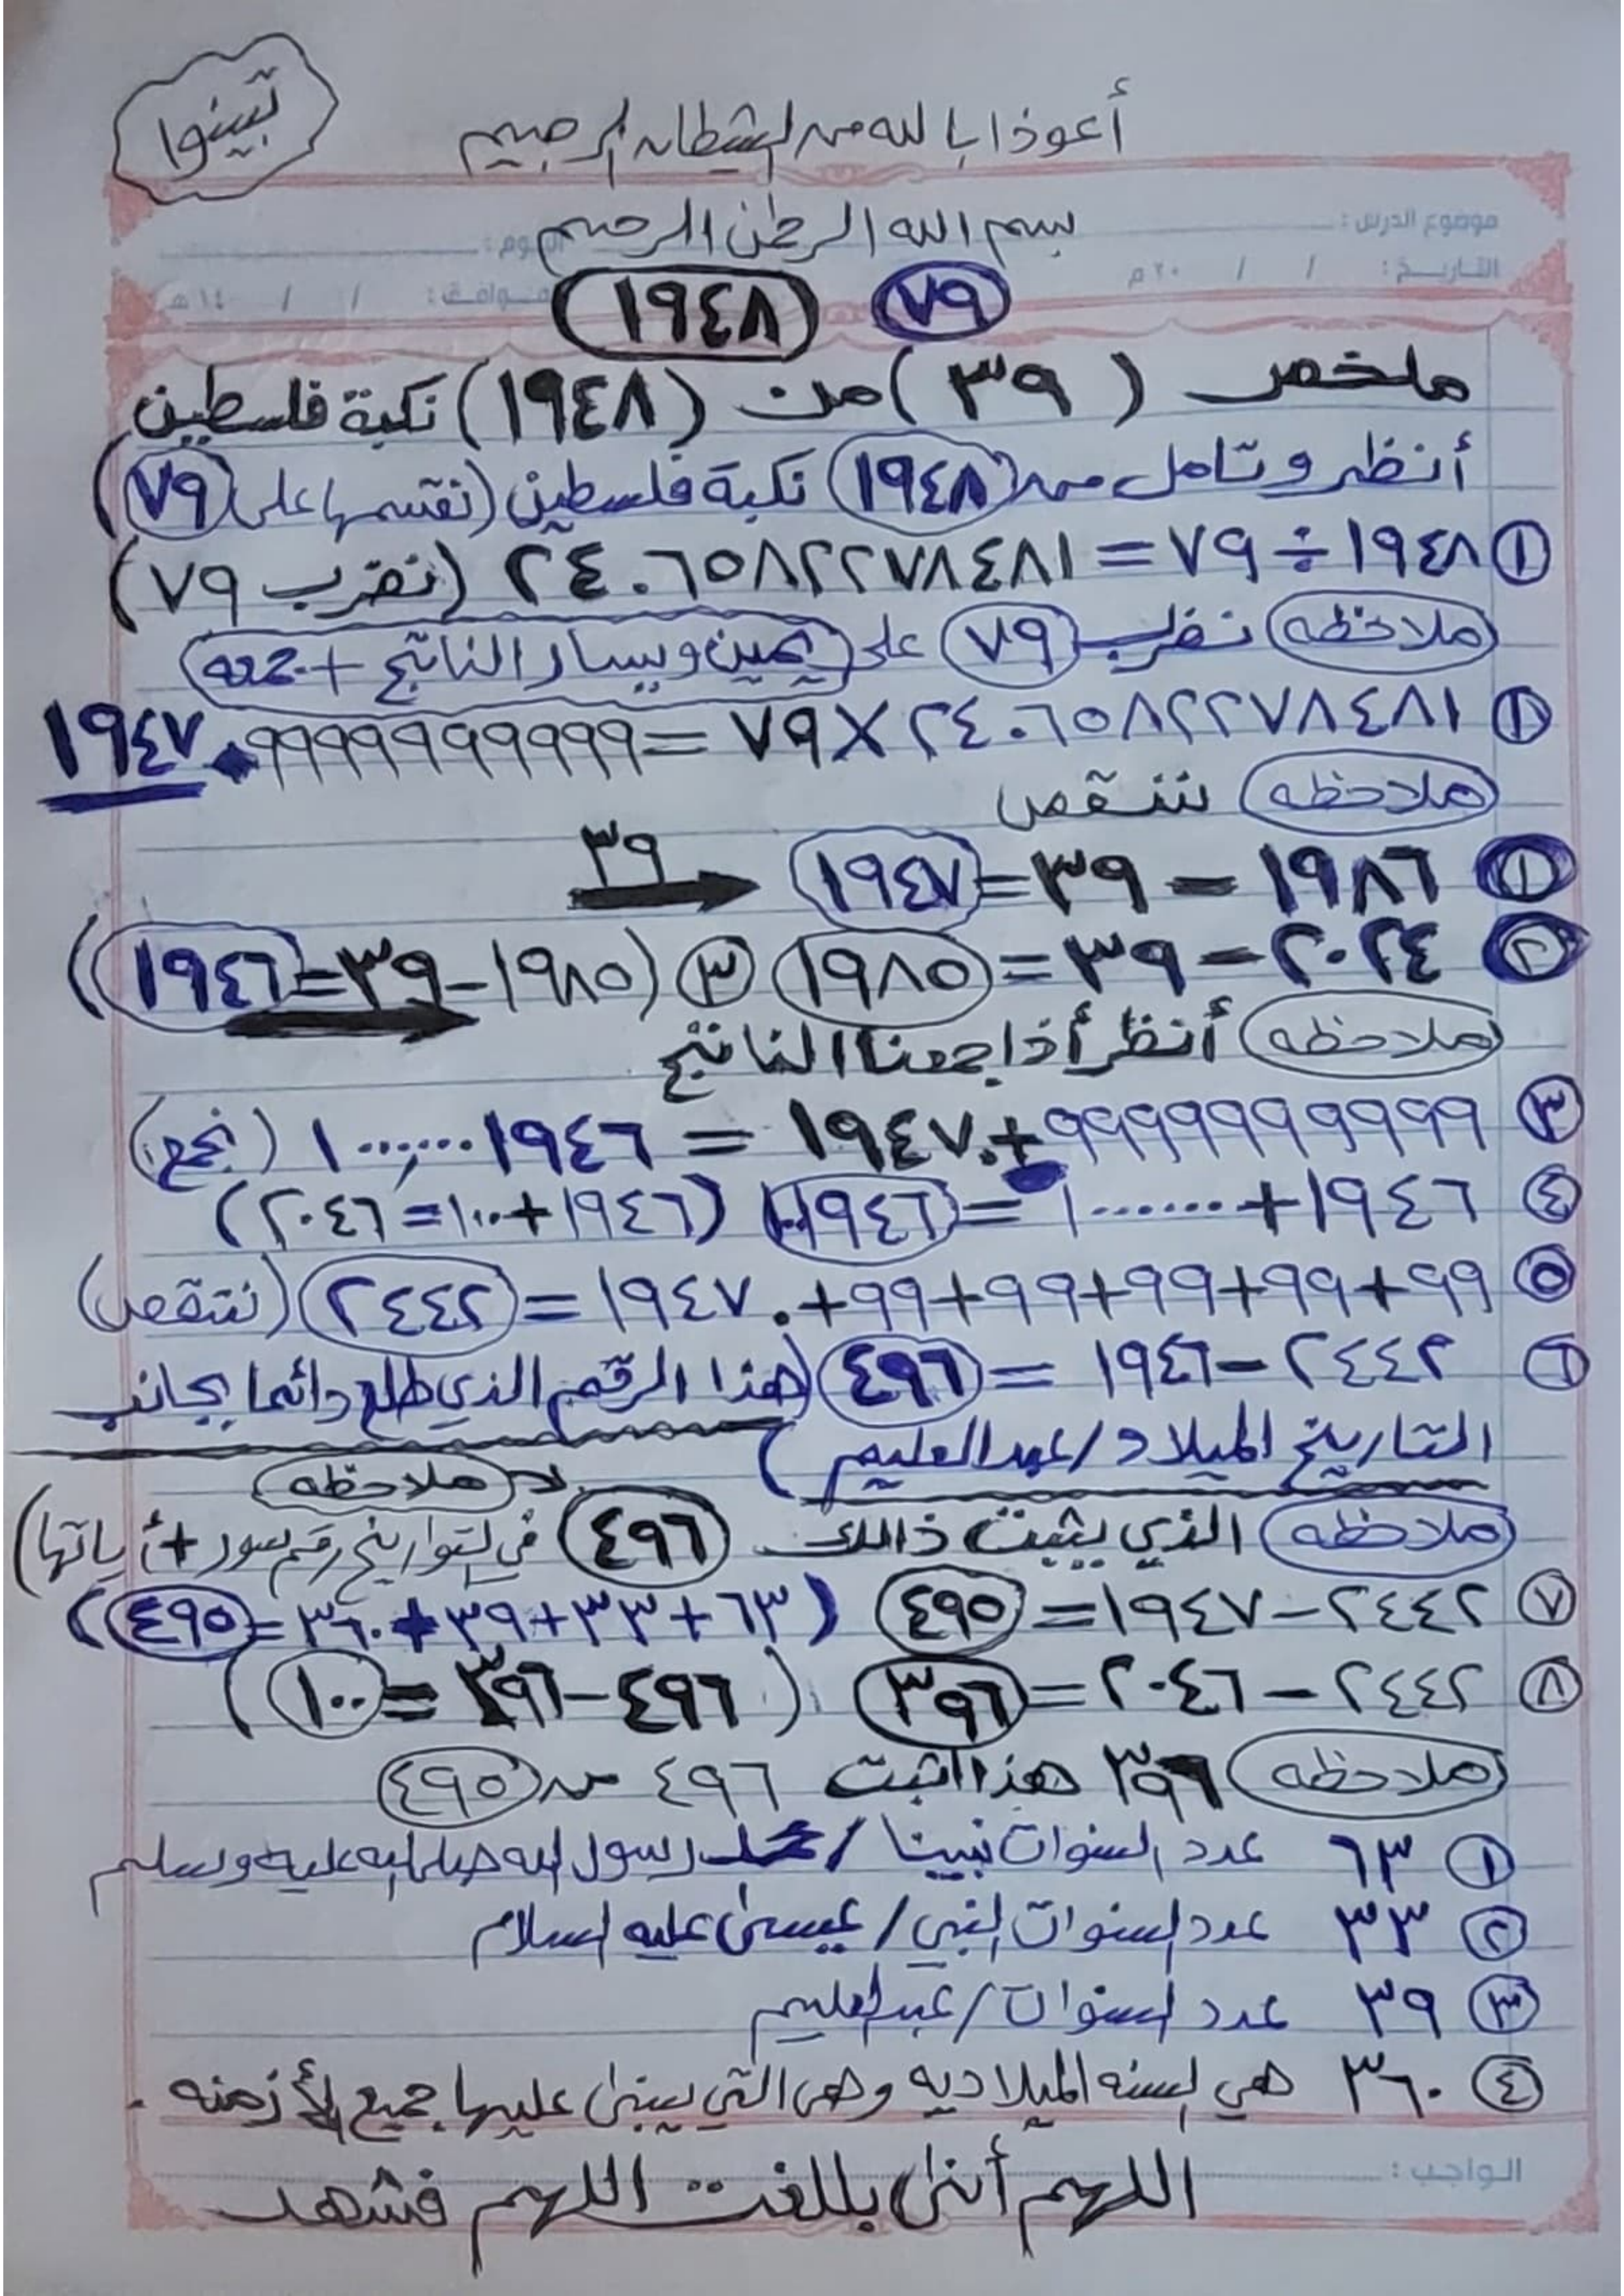 تبينوا
أعوذ بالله من الشيطان الرجيم
بسم الله الرحمن الرحيم
موضوع الدرس :
اليوم :
التاريخ : / / ٢٠ م
الموافق : / / ١٤ هـ
٧٩ (١٩٤٨)
ملخص (٣٩) من (١٩٤٨) نكبة فلسطين
أنظر وتامل من (١٩٤٨) نكبة فلسطين (نقسمها على ٧٩)
١ ١٩٤٨ ÷ ٧٩ = ٢٤.٦٥٨٢٢٧٨٤٨١ (نضرب ٧٩)
ملاحظه نضرب ٧٩ على يمين ويسار الناتج +
١ ٢٤.٦٥٨٢٢٧٨٤٨١ × ٧٩ = ١٩٤٧.٩٩٩٩٩٩٩٩٩٩٩
ملاحظه ننقص
١ ١٩٨٦ – ٣٩ = ١٩٤٧ ٣٩
٢ ٢٠٢٤ – ٣٩ = ١٩٨٥ ٣ (١٩٨٥ – ٣٩ = ١٩٤٦)
ملاحظه أنظر أذا جمعنا الناتج
٣ ٩٩٩٩٩٩٩٩٩٩٩ + ١٩٤٧. = ١٩٤٦......١ (نجمع)
٤ ١٩٤٦ + ......١ = ١٩٤٦ (١٩٤٦ + ١٠٠ = ٢٠٤٦)
٥ ٩٩ + ٩٩ + ٩٩ + ٩٩ + ٩٩ + ١٩٤٧. = ٢٤٤٢ (ننقص)
٦ ٢٤٤٢ – ١٩٤٦ = ٤٩٦ (هذا الرقم الذي طلع دائما بجانب
التاريخ الميلاد / عبدالعليم)
ملاحظه
ملاحظه الذي يثبت ذالك ٤٩٦ في التواريخ رقم سور + أياتها)
٧ ٢٤٤٢ – ١٩٤٧ = ٤٩٥ (٦٣ + ٣٣ + ٣٩ + ٣٦٠ = ٤٩٥)
٨ ٢٤٤٢ – ٢٠٤٦ = ٣٩٦ (٤٩٦ – ٣٩٦ = ١٠٠)
ملاحظه ٣٩٦ هذا اثبت ٤٩٦ من ٤٩٥
١ ٦٣ عدد السنوات نبينا / محمد رسول الله صلى الله عليه وسلم
٢ ٣٣ عدد السنوات النبي / عيسى عليه السلام
٣ ٣٩ عدد السنوات / عبدالعليم
٤ ٣٦٠ هي السنه الميلاديه وهي التي يبنى عليها جميع الأزمنه .
الواجب :
اللهم أنى بللغت اللهم فشهد